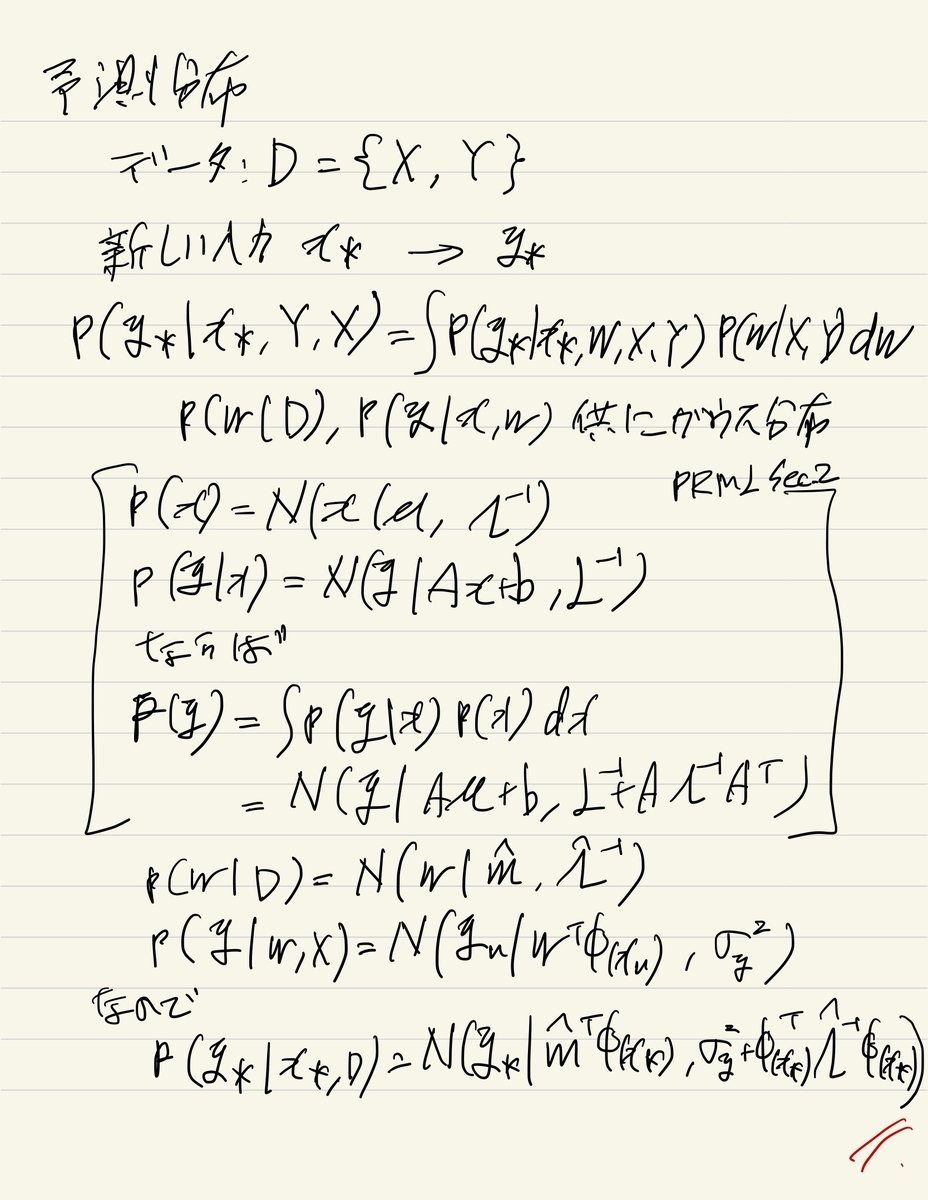 予測分布
データ: D = {X, Y}
新しい入力 x* → y*
p(y*|x*, Y, X) = ∫p(y*|x*, w, X, Y) p(w|X, Y) dw
p(w|D), p(y|x, w) 供にガウス分布
PRML Sec.2
p(x) = N(x|μ, Λ⁻¹)
p(y|x) = N(y|Ax+b, L⁻¹)
ならば
p(y) = ∫p(y|x) p(x) dx
= N(y|Aμ+b, L⁻¹+AΛ⁻¹Aᵀ)
p(w|D) = N(w|m̂, Λ̂⁻¹)
p(y|w, X) = N(yn|wᵀϕ(xn), σy²)
なので
p(y*|x*, D) = N(y*|m̂ᵀϕ(x*), σy²+ϕ(x*)ᵀΛ̂⁻¹ϕ(x*))